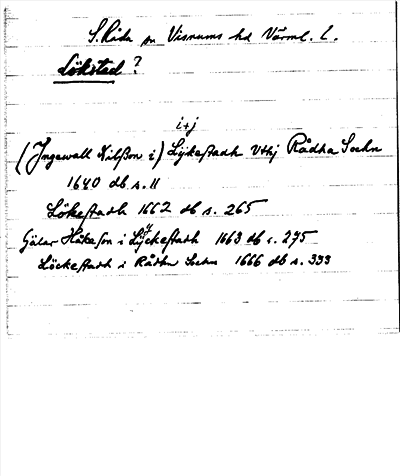 S. Råda sn Visnums hd Värml. l.
Lökstad?
i+j
(Ingewall Nilßon i) Lykestadh vthj Rådha Sochn
1640 db s. 11
Lökestadh 1662 db s. 265
Håkeson i Lyckestadh 1663 db s. 275
Löckestadh i Rådha Sochn 1666 db s. 333